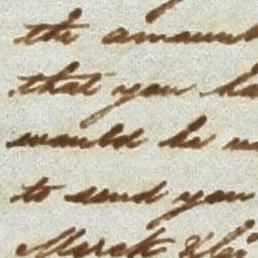 the amount
that you ha
would be
to send you